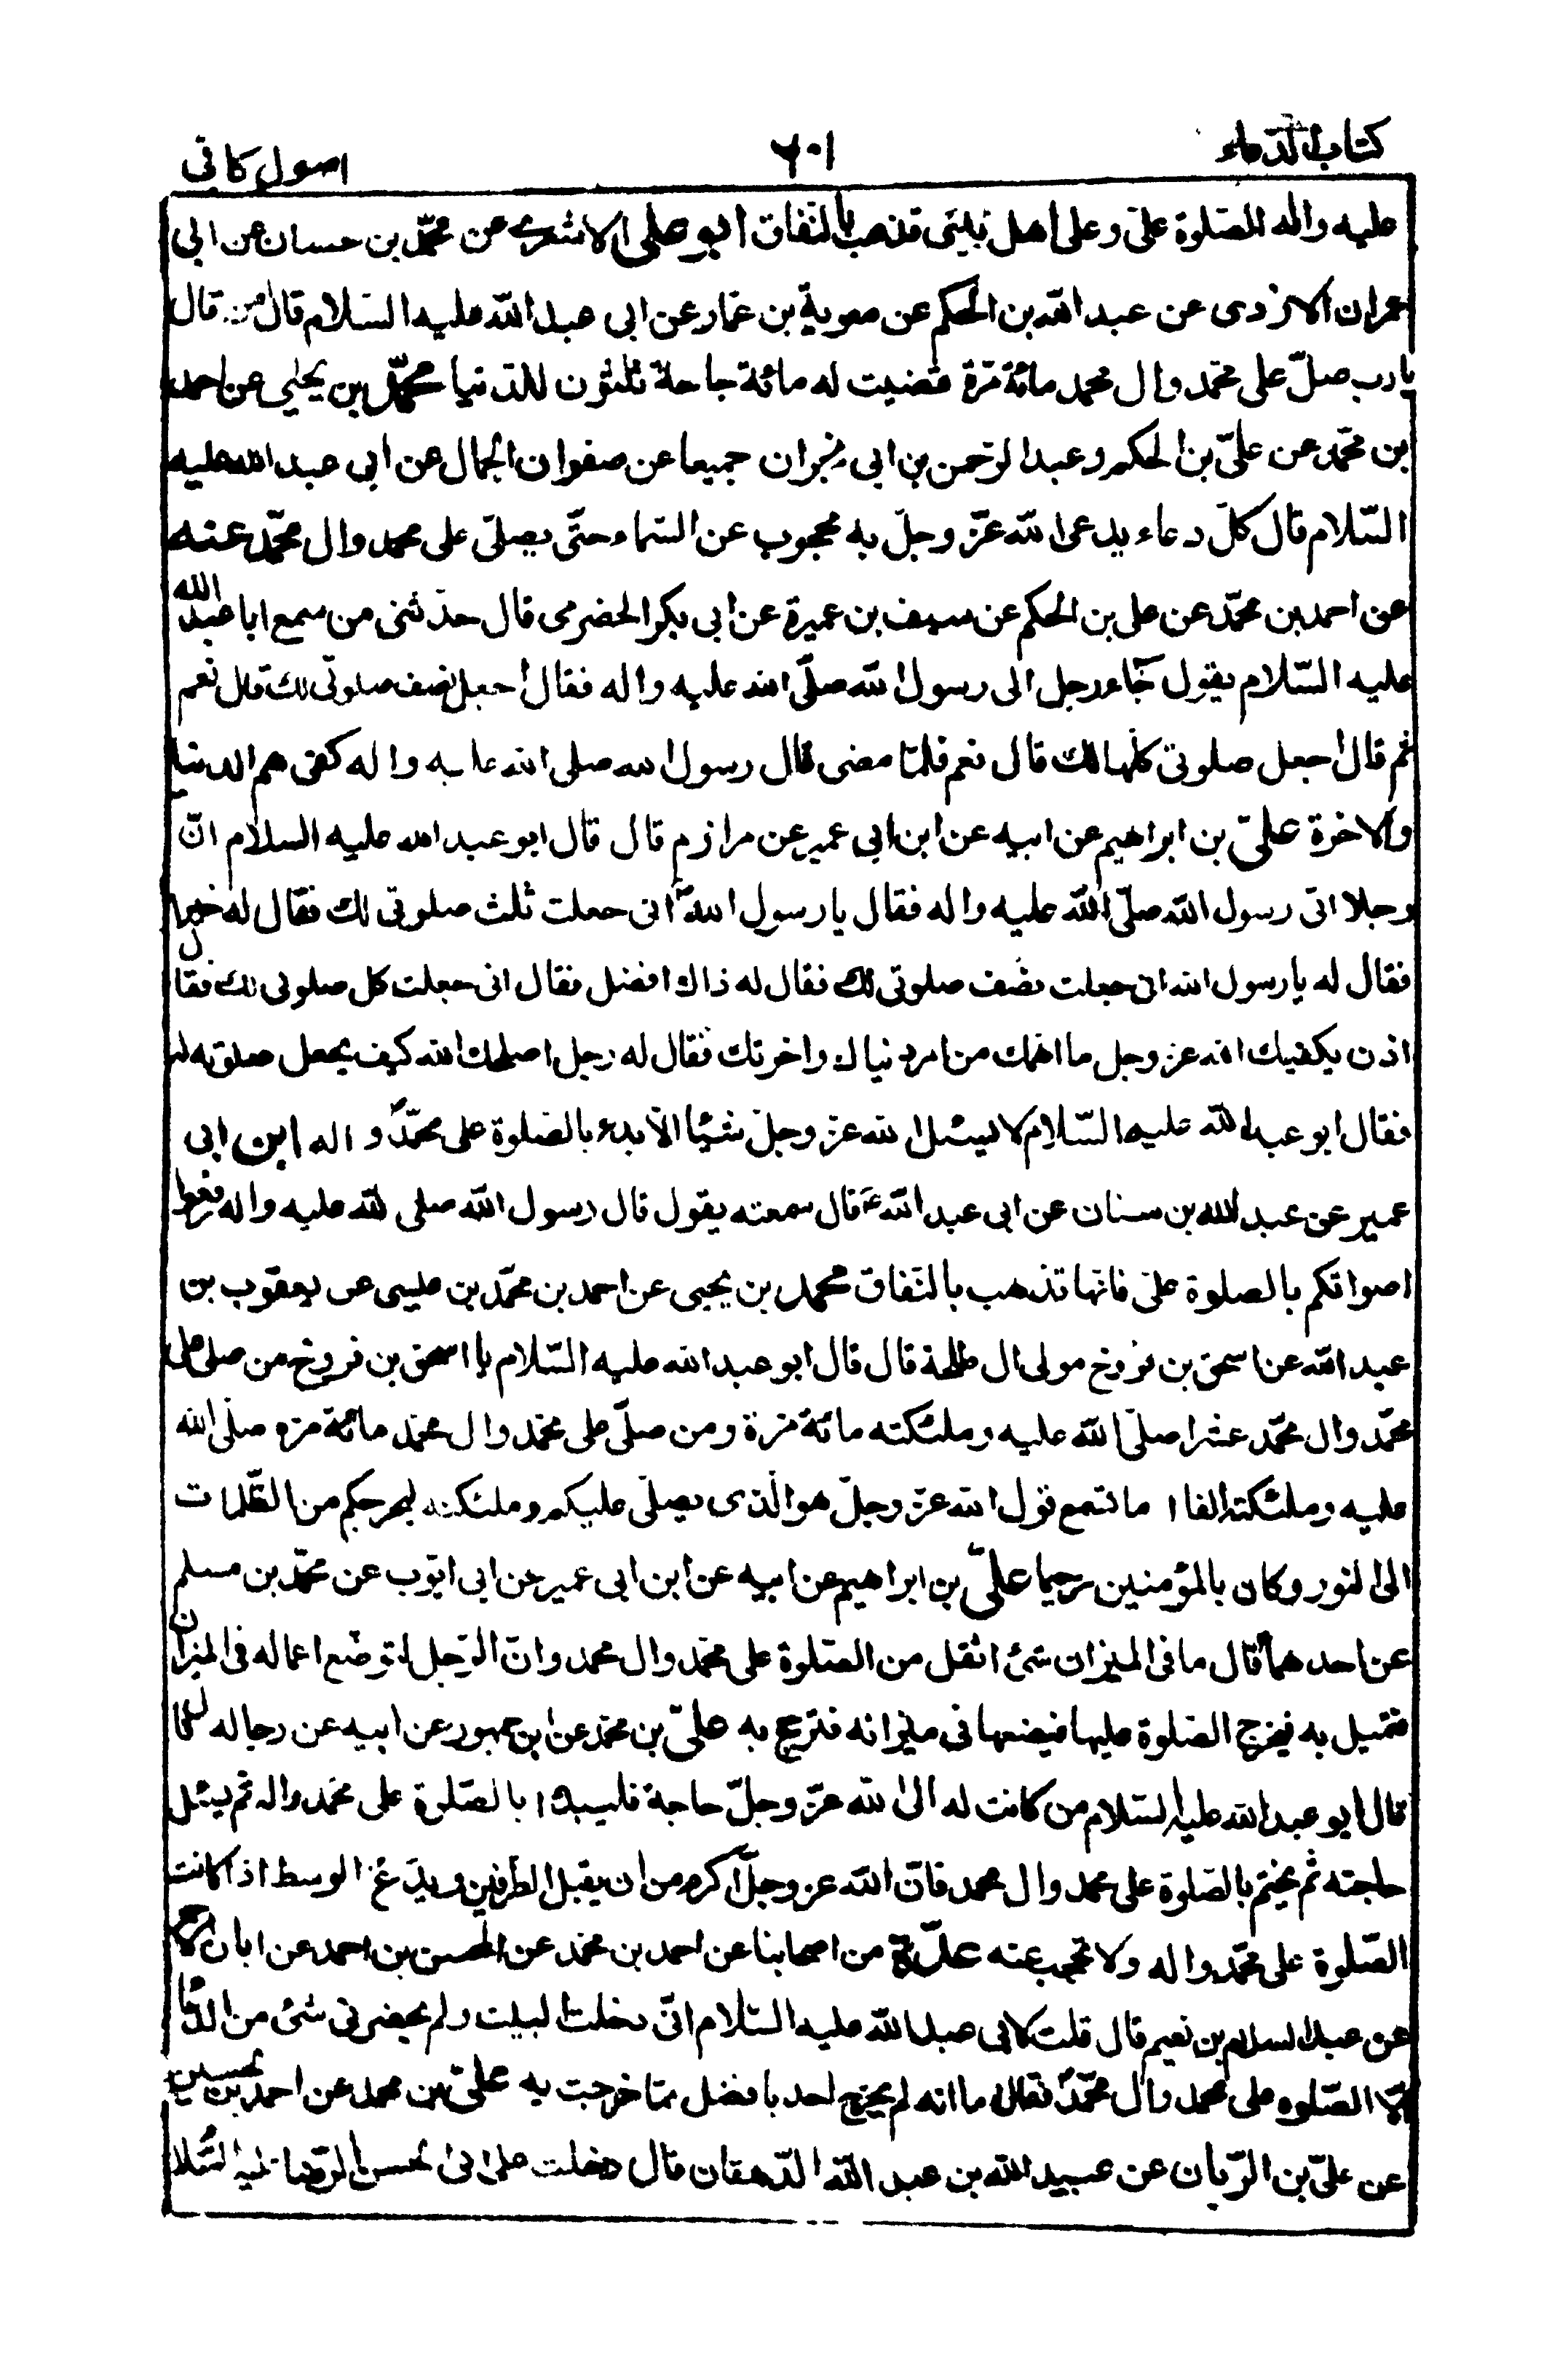 كتاب الدعاء
٦٠١
اصول كافى
عليه واله الصّلوة علىّ وعلى اهل بيتى تذهب بالنّفاق ابو على الاشعرى عن محمّد بن حسان عن ابى
عمران الازدى عن عبد الله بن الحكم عن معوية بن عمّار عن ابى عبد الله عليه السّلام قال من قال
يارب صلّ على محمّد وال محمد مائة مرّة قضيت له مائة حاجة ثلثون للدّنيا محمّد بن يحيى عن احمد
بن محمّد عن علىّ بن الحكم وعبد الرّحمن بن ابى نجران جميعا عن صفوان الجمال عن ابى عبد الله عليه
السّلام قال كلّ دعاء يدعى الله عزّ وجلّ به محجوب عن السّماء حتّى يصلّى على محمد وال محمّد عنه
عن احمد بن محمّد عن على بن الحكم عن سيف بن عميرة عن ابى بكر الحضرمى قال حدّثنى من سمع ابا عبد الله
عليه السّلام يقول جاء رجل الى رسول الله صلّى الله عليه واله فقال اجعل نصف صلوتى لك قال نعم
ثم قال اجعل صلوتى كلّها لك قال نعم فلمّا مضى قال رسول الله صلى الله عليه واله كفى هم الدنيا
والاخرة علىّ بن ابراهيم عن ابيه عن ابن ابى عمير عن مرازم قال قال ابو عبد الله عليه السلام انّ
رجلا اتى رسول الله صلّى الله عليه واله فقال يا رسول الله انى جعلت ثلث صلوتى لك فقال له خيرا
فقال له يا رسول الله انى جعلت نصف صلوتى لك فقال له ذاك افضل فقال انى جعلت كل صلوتى لك فقال
اذن يكفيك الله عز وجل ما اهمك من امر دنياك واخرتك فقال له رجل اصلحك الله كيف يجعل صلوته له
فقال ابو عبد الله عليه السّلام لا يسئل الله عزّ وجلّ شيئا الّا بدء بالصّلوة على محمّد واله ابن ابى
عمير عن عبد الله بن سنان عن ابى عبد الله ع قال سمعته يقول قال رسول الله صلى الله عليه واله ارفعوا
اصواتكم بالصلوة علىّ فانّها تذهب بالنّفاق محمّد بن يحيى عن احمد بن محمّد بن عيسى عن يعقوب بن
عبد الله عن اسحق بن فروخ مولى ال طلحة قال قال ابو عبد الله عليه السّلام يا اسحق بن فروخ من صلى على
محمّد وال محمّد عشرا صلّى الله عليه وملئكته مائة مرّة ومن صلّى على محمّد وال محمّد مائة مره صلّى الله
عليه وملئكته الفا اما تسمع قول الله عزّ وجلّ هو الّذى يصلّى عليكم وملئكته ليخرجكم من الظّلمات
الى النور وكان بالمؤمنين رحيما علىّ بن ابراهيم عن ابيه عن ابن ابى عمير عن ابى ايّوب عن محمّد بن مسلم
عن احدهما قال ما فى الميزان شئ اثقل من الصّلوة على محمّد وال محمد وانّ الرّجل لتوضع اعماله فى الميزان
فتميل به فيخرج الصّلوة عليها فيضعها فى ميزانه فترجح به علىّ بن محمّد عن ابن جمهور عن ابيه عن رجاله
قال ابو عبد الله عليه السّلام من كانت له الى الله عزّ وجلّ حاجة فليبدا بالصّلوة على محمّد واله ثم يسئل
حاجته ثم يختم بالصّلوة على محمد وال محمد فانّ الله عز وجلّ اكرم من ان يقبل الطّرفين ويدع الوسط اذا كانت
الصّلوة على محمّد واله ولا تحجب عنه عدّة من اصحابنا عن احمد بن محمّد عن الحسن بن احمد عن ابان
عن عبد السلام بن نعيم قال قلت لابى عبد الله عليه السّلام انّى دخلت البيت ولم يحضرنى شئ من الدّعا
الّا الصّلوه على محمد وال محمّد فقال اما انه لم يخرج احد بافضل ممّا خرجت به علىّ بن محمد عن احمد بن الحسين
عن علىّ بن الرّيان عن عبيد الله بن عبد الله الدّهقان قال دخلت على ابى الحسن الرّضا عليه السّلا